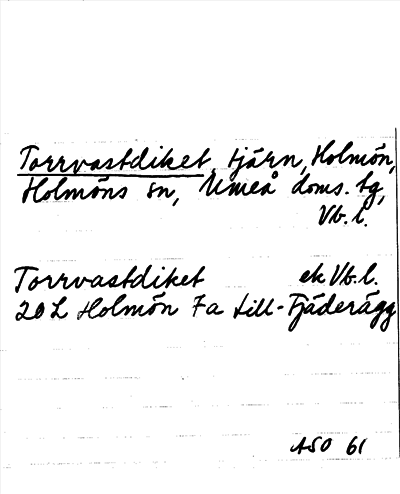 Torrvastdiket, tjärn, Holmön,
Holmöns sn, Umeå doms. tg,
Vb. l.
Torrvastdiket ek Vb. l.
20 L Holmön 7a till-Fjäderägg
ASO 61